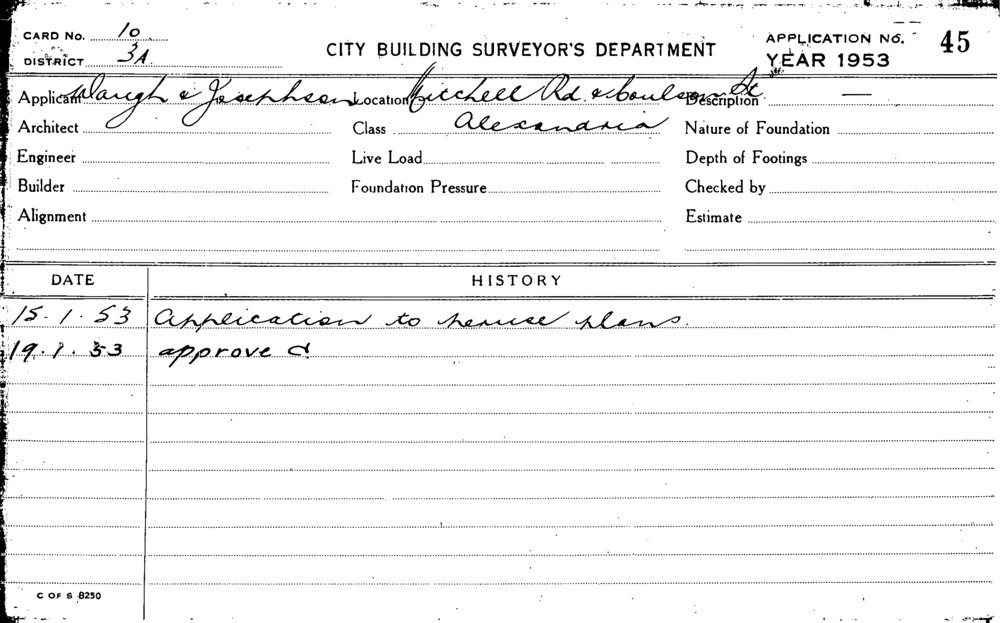 CARD No. 10
DISTRICT 3A.
CITY BUILDING SURVEYOR'S DEPARTMENT
APPLICATION No. 45
YEAR 1953
Applicant Waugh & Josephson Location Mitchell Rd. & Coulson St. Description —
Architect Class Alexandria Nature of Foundation
Engineer Live Load Depth of Footings
Builder Foundation Pressure Checked by
Alignment Estimate
DATE HISTORY
15.1.53 Application to peruse plans.
19.1.53 approved
C OF S 8250